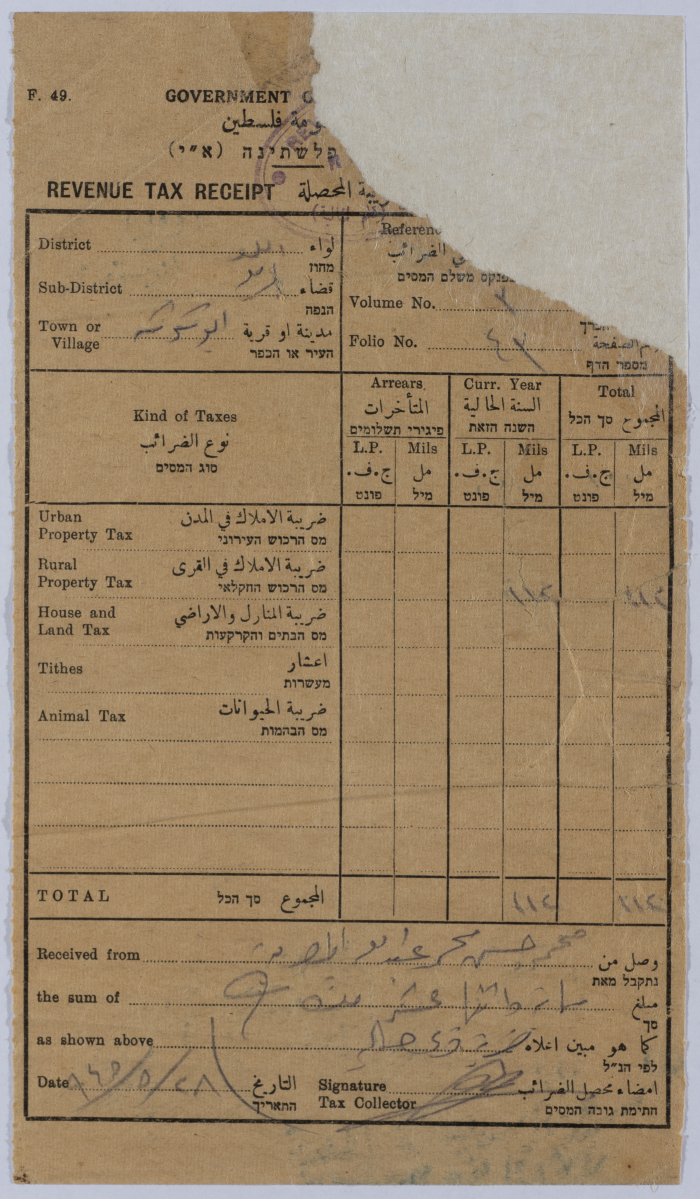 F. 49.
GOVERNMENT O
ومة فلسطين
פלשתינה (א״י)
REVENUE TAX RECEIPT يبة المحصلة
District لواء
מחוז
Sub-District قضاء
הנפה
Town or Village مدينة او قرية ابو شوشه
העיר או הכפר
Referenc
ي الضرائب
פנקס משלם המסים
Volume No. ٣
Folio No. ٤٣
מספר הדף
Kind of Taxes
نوع الضرائب
סוג המסים
Arrears Curr. Year Total
المتأخرات السنة الحالية المجموع סך הכל
פיגורי תשלומים השנה הזאת
L.P. Mils L.P. Mils L.P. Mils
ج.ف. مل ج.ف. مل ج.ف. مل
פונט מיל פונט מיל פונט מיל
Urban ضريبة الاملاك في المدن
Property Tax מס הרכוש העירוני
Rural ضريبة الاملاك في القرى
Property Tax מס הרכוש החקלאי
١١٢ ١١٢
House and ضريبة المنازل والاراضي
Land Tax מס הבתים והקרקעות
Tithes اعشار
מעשרות
Animal Tax ضريبة الحيوانات
מס הבהמות
TOTAL סך הכל المجموع ١١٢ ١١٢
Received from وصل من
נתקבל מאת
the sum of مبلغ
סך
as shown above كما هو مبين اعلاه
לפי הנ״ל
Date التاريخ
התאריך
Signature امضاء محصل الضرائب
Tax Collector חתימת גובה המסים